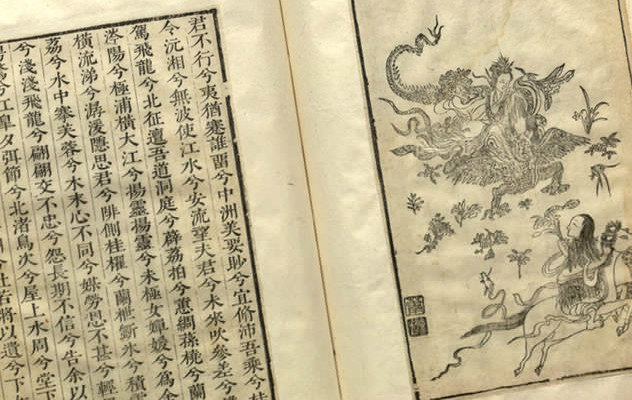 君不行兮夷猶蹇誰畱兮中洲美要眇兮宜修沛吾乘兮桂
令沅湘兮無波使江水兮安流望夫君兮未來吹參差兮
駕飛龍兮北征邅吾道洞庭兮薜荔拍兮蕙綢蓀橈兮蘭
涔陽兮極浦橫大江兮揚靈揚靈兮未極女嬋媛兮爲余
橫流涕兮潺湲隱思君兮陫側桂櫂兮蘭枻斲冰兮積雪
荔兮水中搴芙蓉兮木末心不同兮媒勞恩不甚兮輕
兮淺淺飛龍兮翩翩交不忠兮怨長期不信兮告余以
兮江皋夕弭節兮北渚鳥次兮屋上水周兮堂下
杜若將以遺兮下